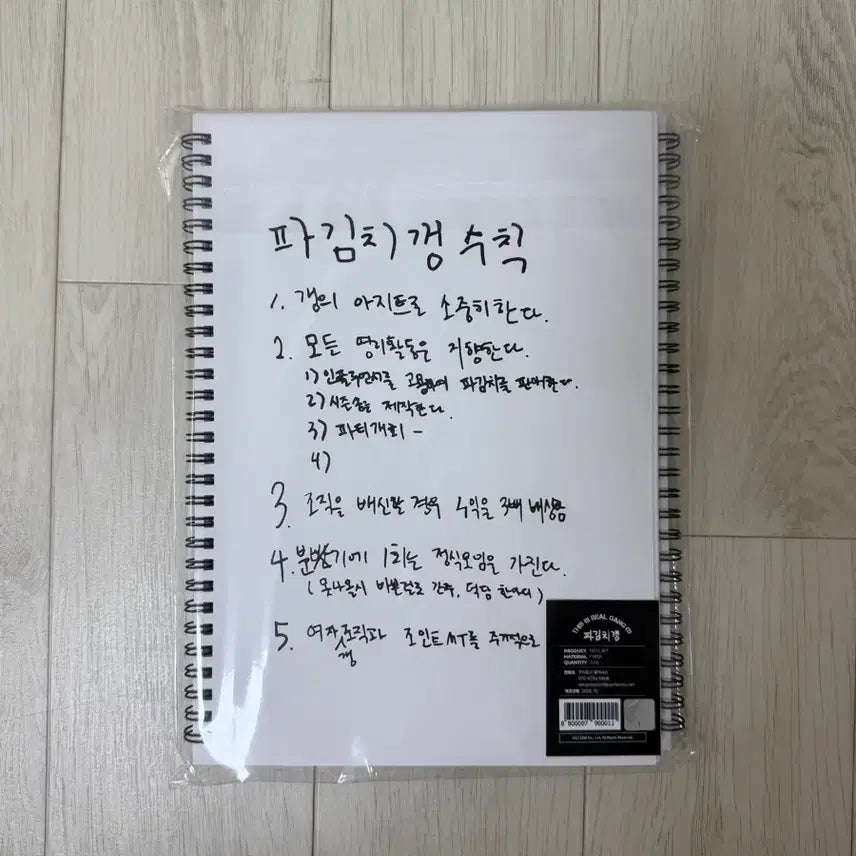 파김치갱 수칙
1. 갱의 아지트로 소중히한다.
2. 모든 영리활동은 지향한다.
1) 인플루언서를 고용하여 파김치를 판매한다.
2) 시즌송을 제작한다.
3) 파티개최 -
4)
3. 조직을 배신할 경우 수익을 3배 배상함
4. 분기에 1회는 정식모임을 가진다.
( 못나올시 바쁜걸로 간주, 덕담 한마디 )
5. 여자조직과 조인트MT를 주기적으로
갱
THIS IS REAL GANG
파김치갱
PRODUCT NOTE SET
MATERIAL PAPER
QUANTITY
8 800007 900011